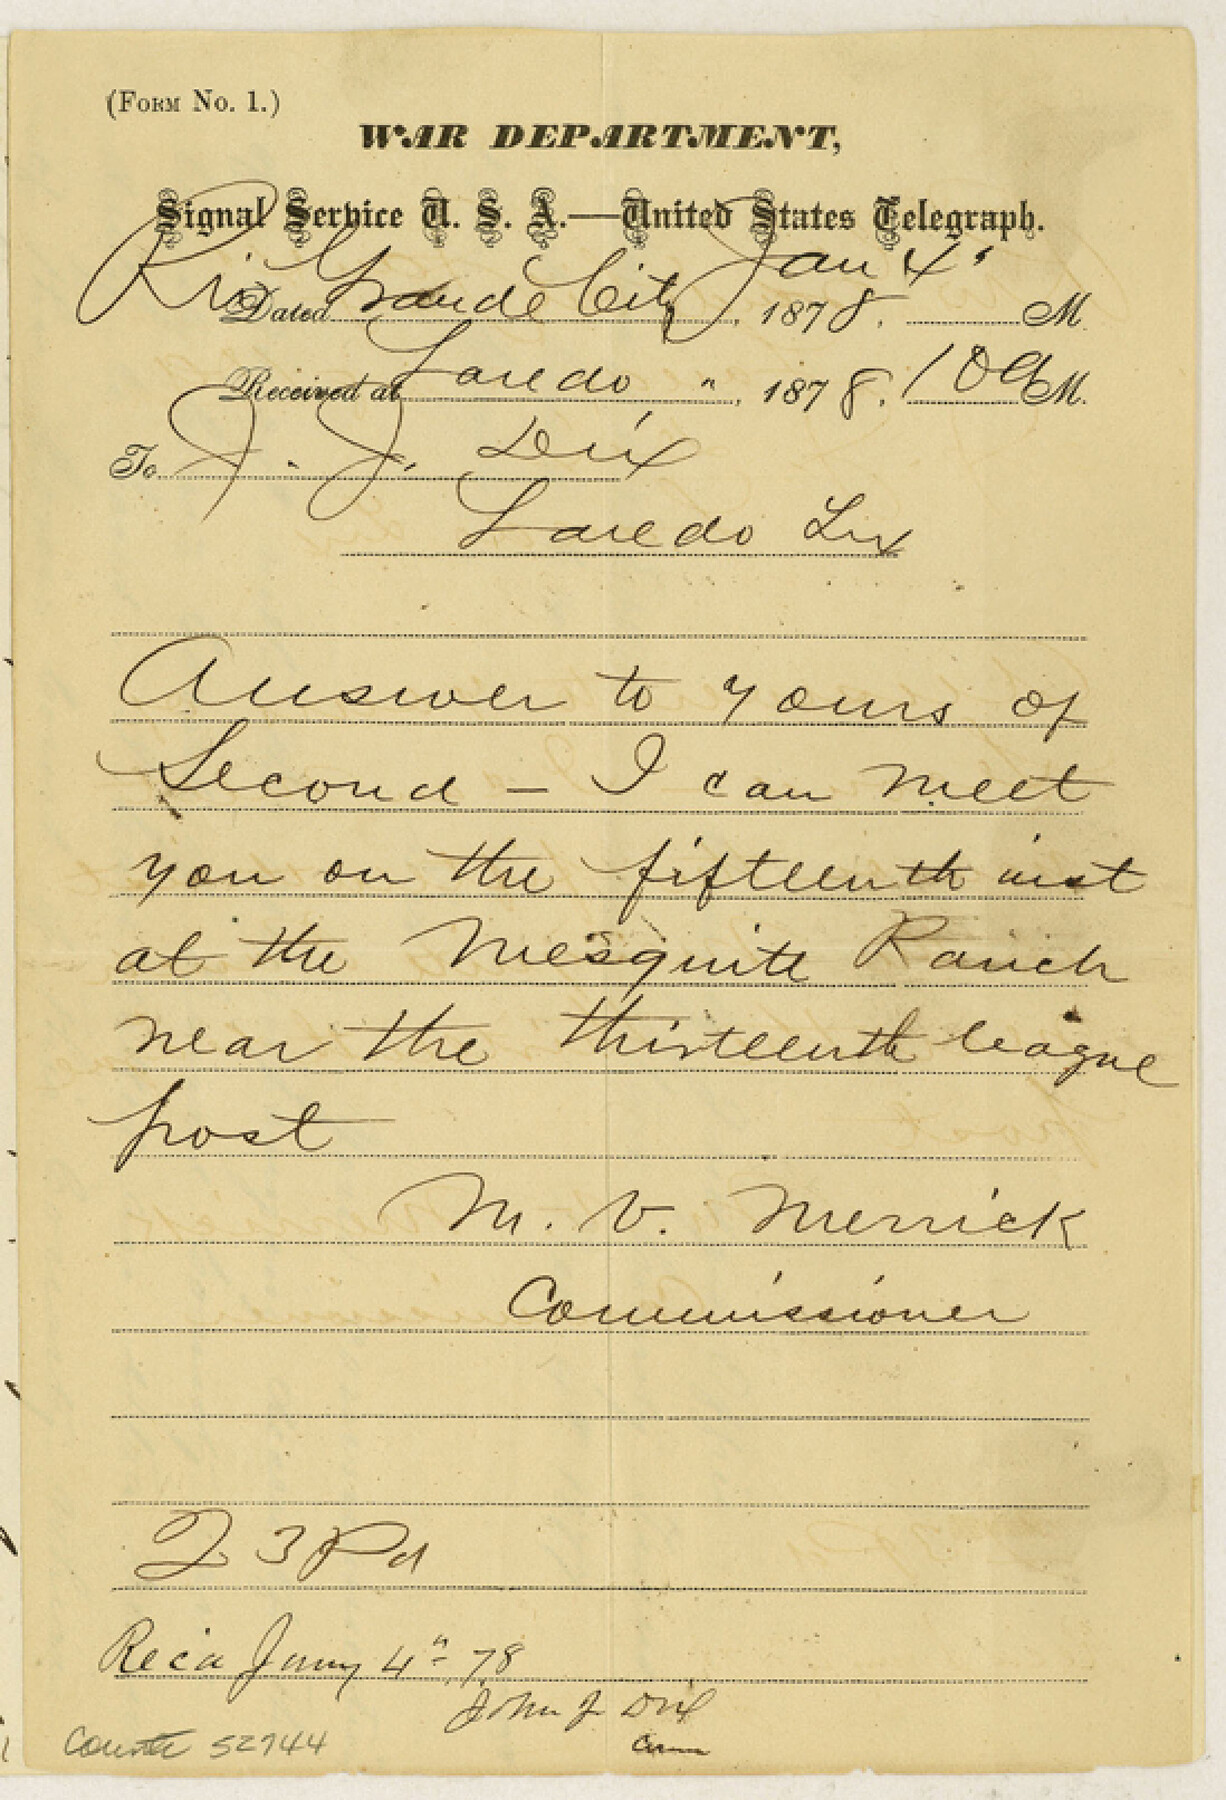 (Form No. 1.)
WAR DEPARTMENT,
Signal Service U. S. A.—United States Telegraph.
Dated Rio Grande City Jan 4", 1878. M.
Received at Laredo ", 1878. 109 M.
To J. J. Dix
Laredo Tex
Answer to yours of
Second – I can meet
you on the fifteenth inst
at the Mesquite Ranch
near the thirteenth league
post
M. V. Merrick
Commissioner
23 Pd
Rec'd Jany 4" 78
John J Dix
Com
Counter 52944